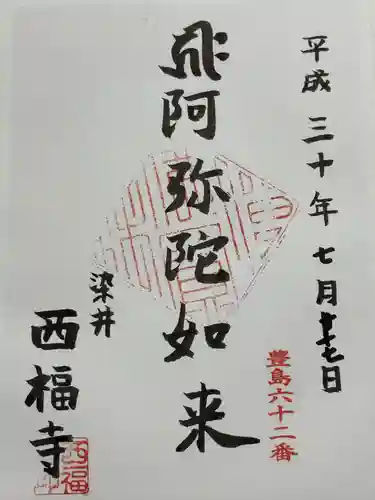 平成三十年七月十七日
阿弥陀如来
豊島六十二番
染井
西福寺
西福